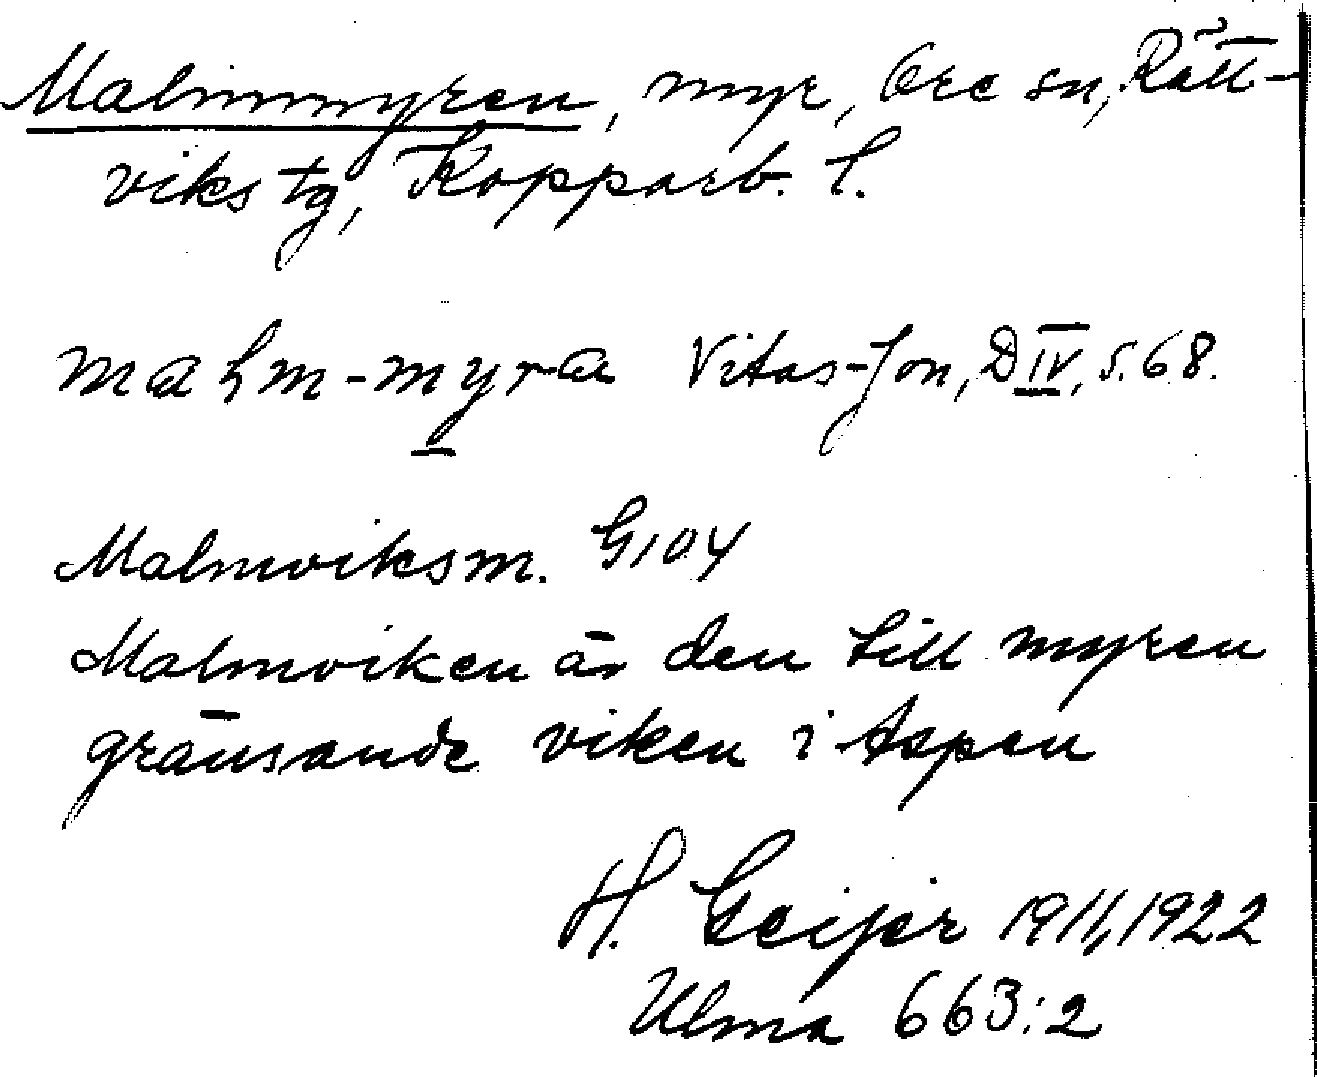 Malmmyren, myr, Ore sn, Rätt-
viks tg, Kopparb. l.
mahm-myra Vitas-Jon, D IV, s. 68.
Malmviksm. G104
Malmviken är den till myren
gränsande viken i Aspen
H. Geijer 1911, 1922
Ulma 663:2